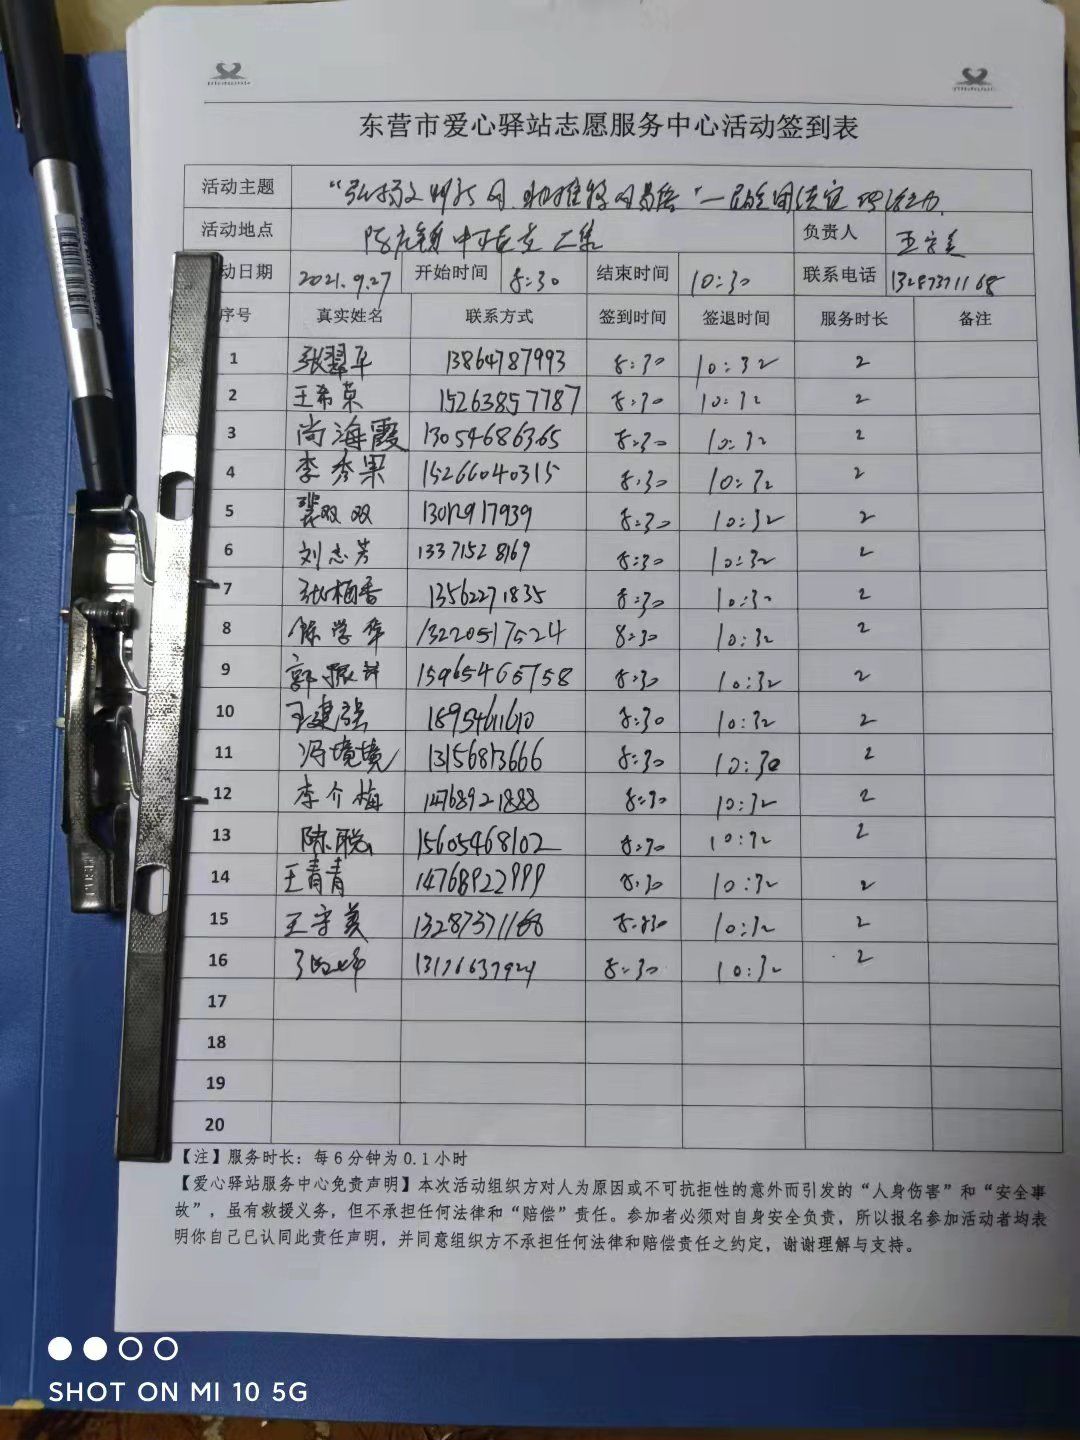 东营市爱心驿站志愿服务中心活动签到表
活动主题
活动地点 负责人 王守美
动日期 2021.9.27 开始时间 8:30 结束时间 10:30 联系电话 13287371168
序号 真实姓名 联系方式 签到时间 签退时间 服务时长 备注
1 张翠平 13864787993 8:30 10:32 2
2 王希荣 15263857787 8:30 10:32 2
3 尚海霞 13054686365 8:30 10:32 2
4 李秀果 15266040315 8:30 10:32 2
5 裴双双 13012917939 8:30 10:32 2
6 刘志芳 13371528169 8:30 10:32 2
7 张梅香 13562271835 8:30 10:32 2
8 徐学华 13220517524 8:30 10:32 2
9 郭振 15965465758 8:30 10:32 2
10 王建强 8:30 10:32 2
11 冯境境 13156813666 8:30 10:30 2
12 李介梅 14768921888 8:30 10:32 2
13 陈聪 15605468102 8:30 10:32 2
14 王青青 14768922999 8:30 10:32 2
15 王守美 13287371168 8:30 10:32 2
16 8:30 10:32 2
17
18
19
20
【注】服务时长：每6分钟为0.1小时
【爱心驿站服务中心免责声明】本次活动组织方对人为原因或不可抗拒性的意外而引发的“人身伤害”和“安全事
故”，虽有救援义务，但不承担任何法律和“赔偿”责任。参加者必须对自身安全负责，所以报名参加活动者均表
明你自己已认同此责任声明，并同意组织方不承担任何法律和赔偿责任之约定，谢谢理解与支持。
SHOT ON MI 10 5G